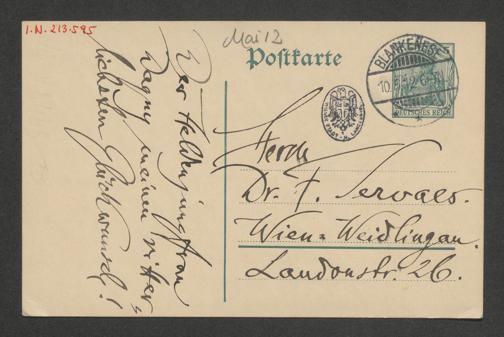 I.N. 213.595
Mai 12
Postkarte
BLANKENESE
10.5.12.
DEUTSCHES REICH
Der Heldenjungfrau
Dagny meinen ritter=
lichsten Glückwunsch!
Herrn
Dr. F. Servaes.
Wien=Weidlingau.
Laudonstr. 26.